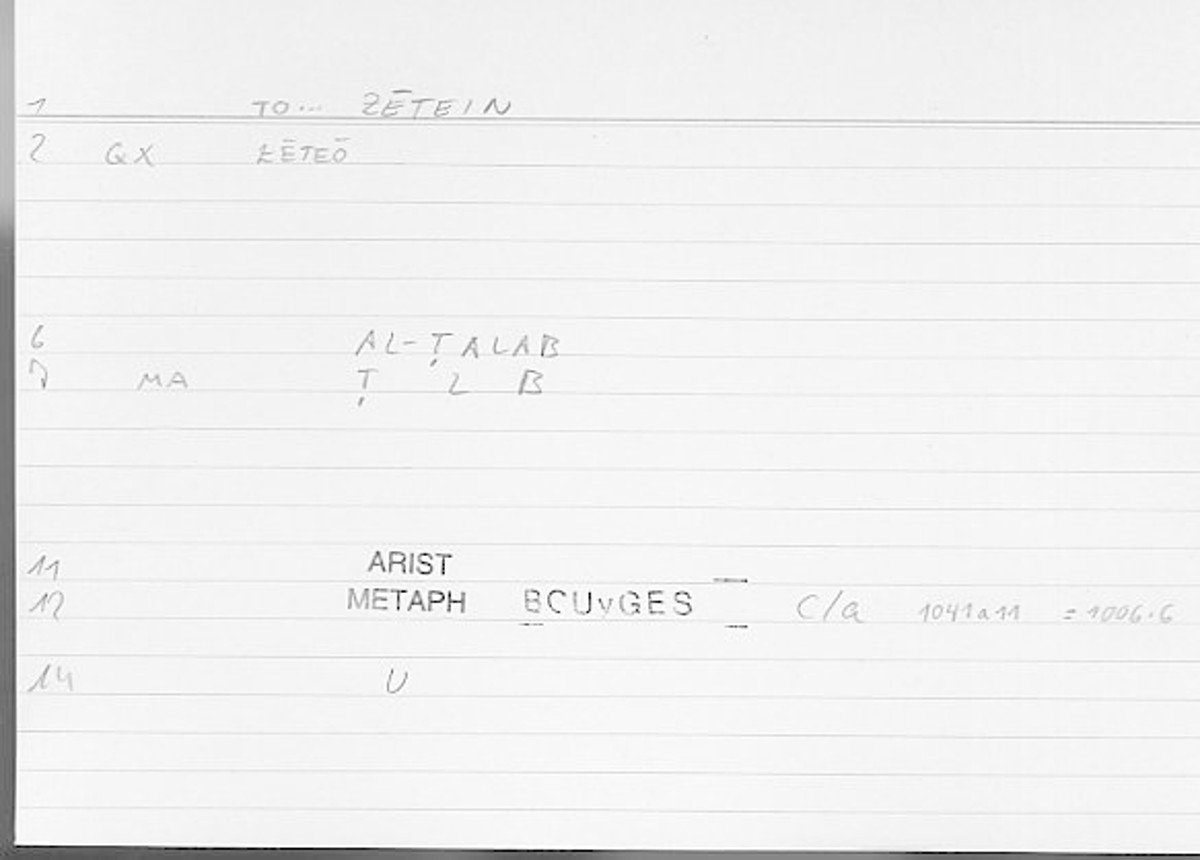 1 TO... ZĒTEIN
2 GX ZĒTEŌ
6 AL-ṬALAB
7 MA Ṭ L B
11 ARIST
12 METAPH BOUYGES C/a 1041a11 = 1006.6
14 U